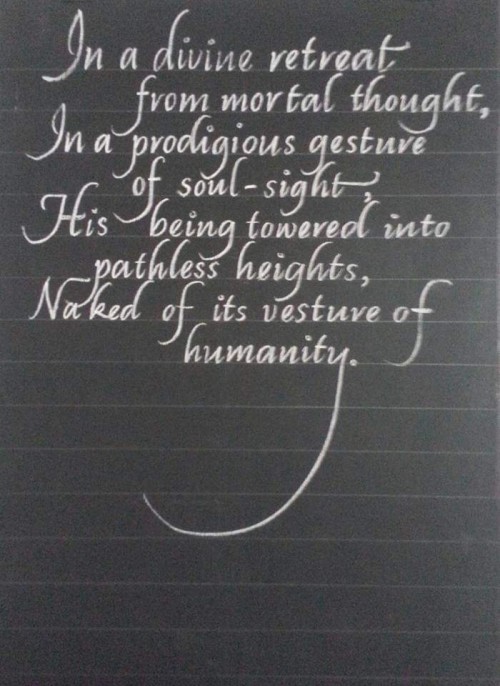 In a divine retreat
from mortal thought,
In a prodigious gesture
of soul-sight,
His being towered into
pathless heights,
Naked of its vesture of
humanity.